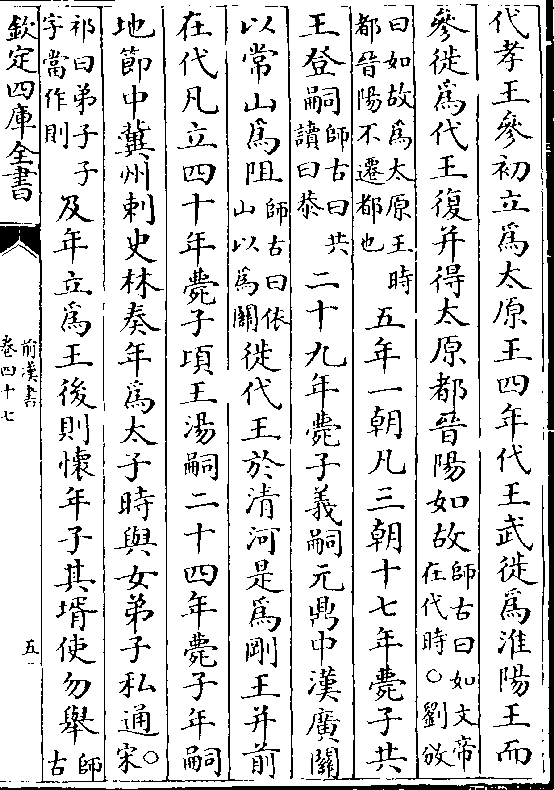 代孝王參初立爲太原王四年代王武徙爲淮陽王而
參徙爲代王復并得太原都晉陽如故師古曰如文帝在代時〇劉攽
曰如故爲太原王時都晉陽不遷都也五年一朝凡三朝十七年薨子共
王登嗣師古曰共讀曰恭二十九年薨子義嗣元鼎中漢廣關
以常山爲阻師古曰依山以爲關徙代王於清河是爲剛王并前
在代凡立四十年薨子項王湯嗣二十四年薨子年嗣
地節中冀州刺史林奏年爲太子時與女弟子私通〇宋
祁曰弟子子字當作則及年立爲王後則懷年子其壻使勿舉師古
欽定四庫全書
前漢書
卷四十七
五